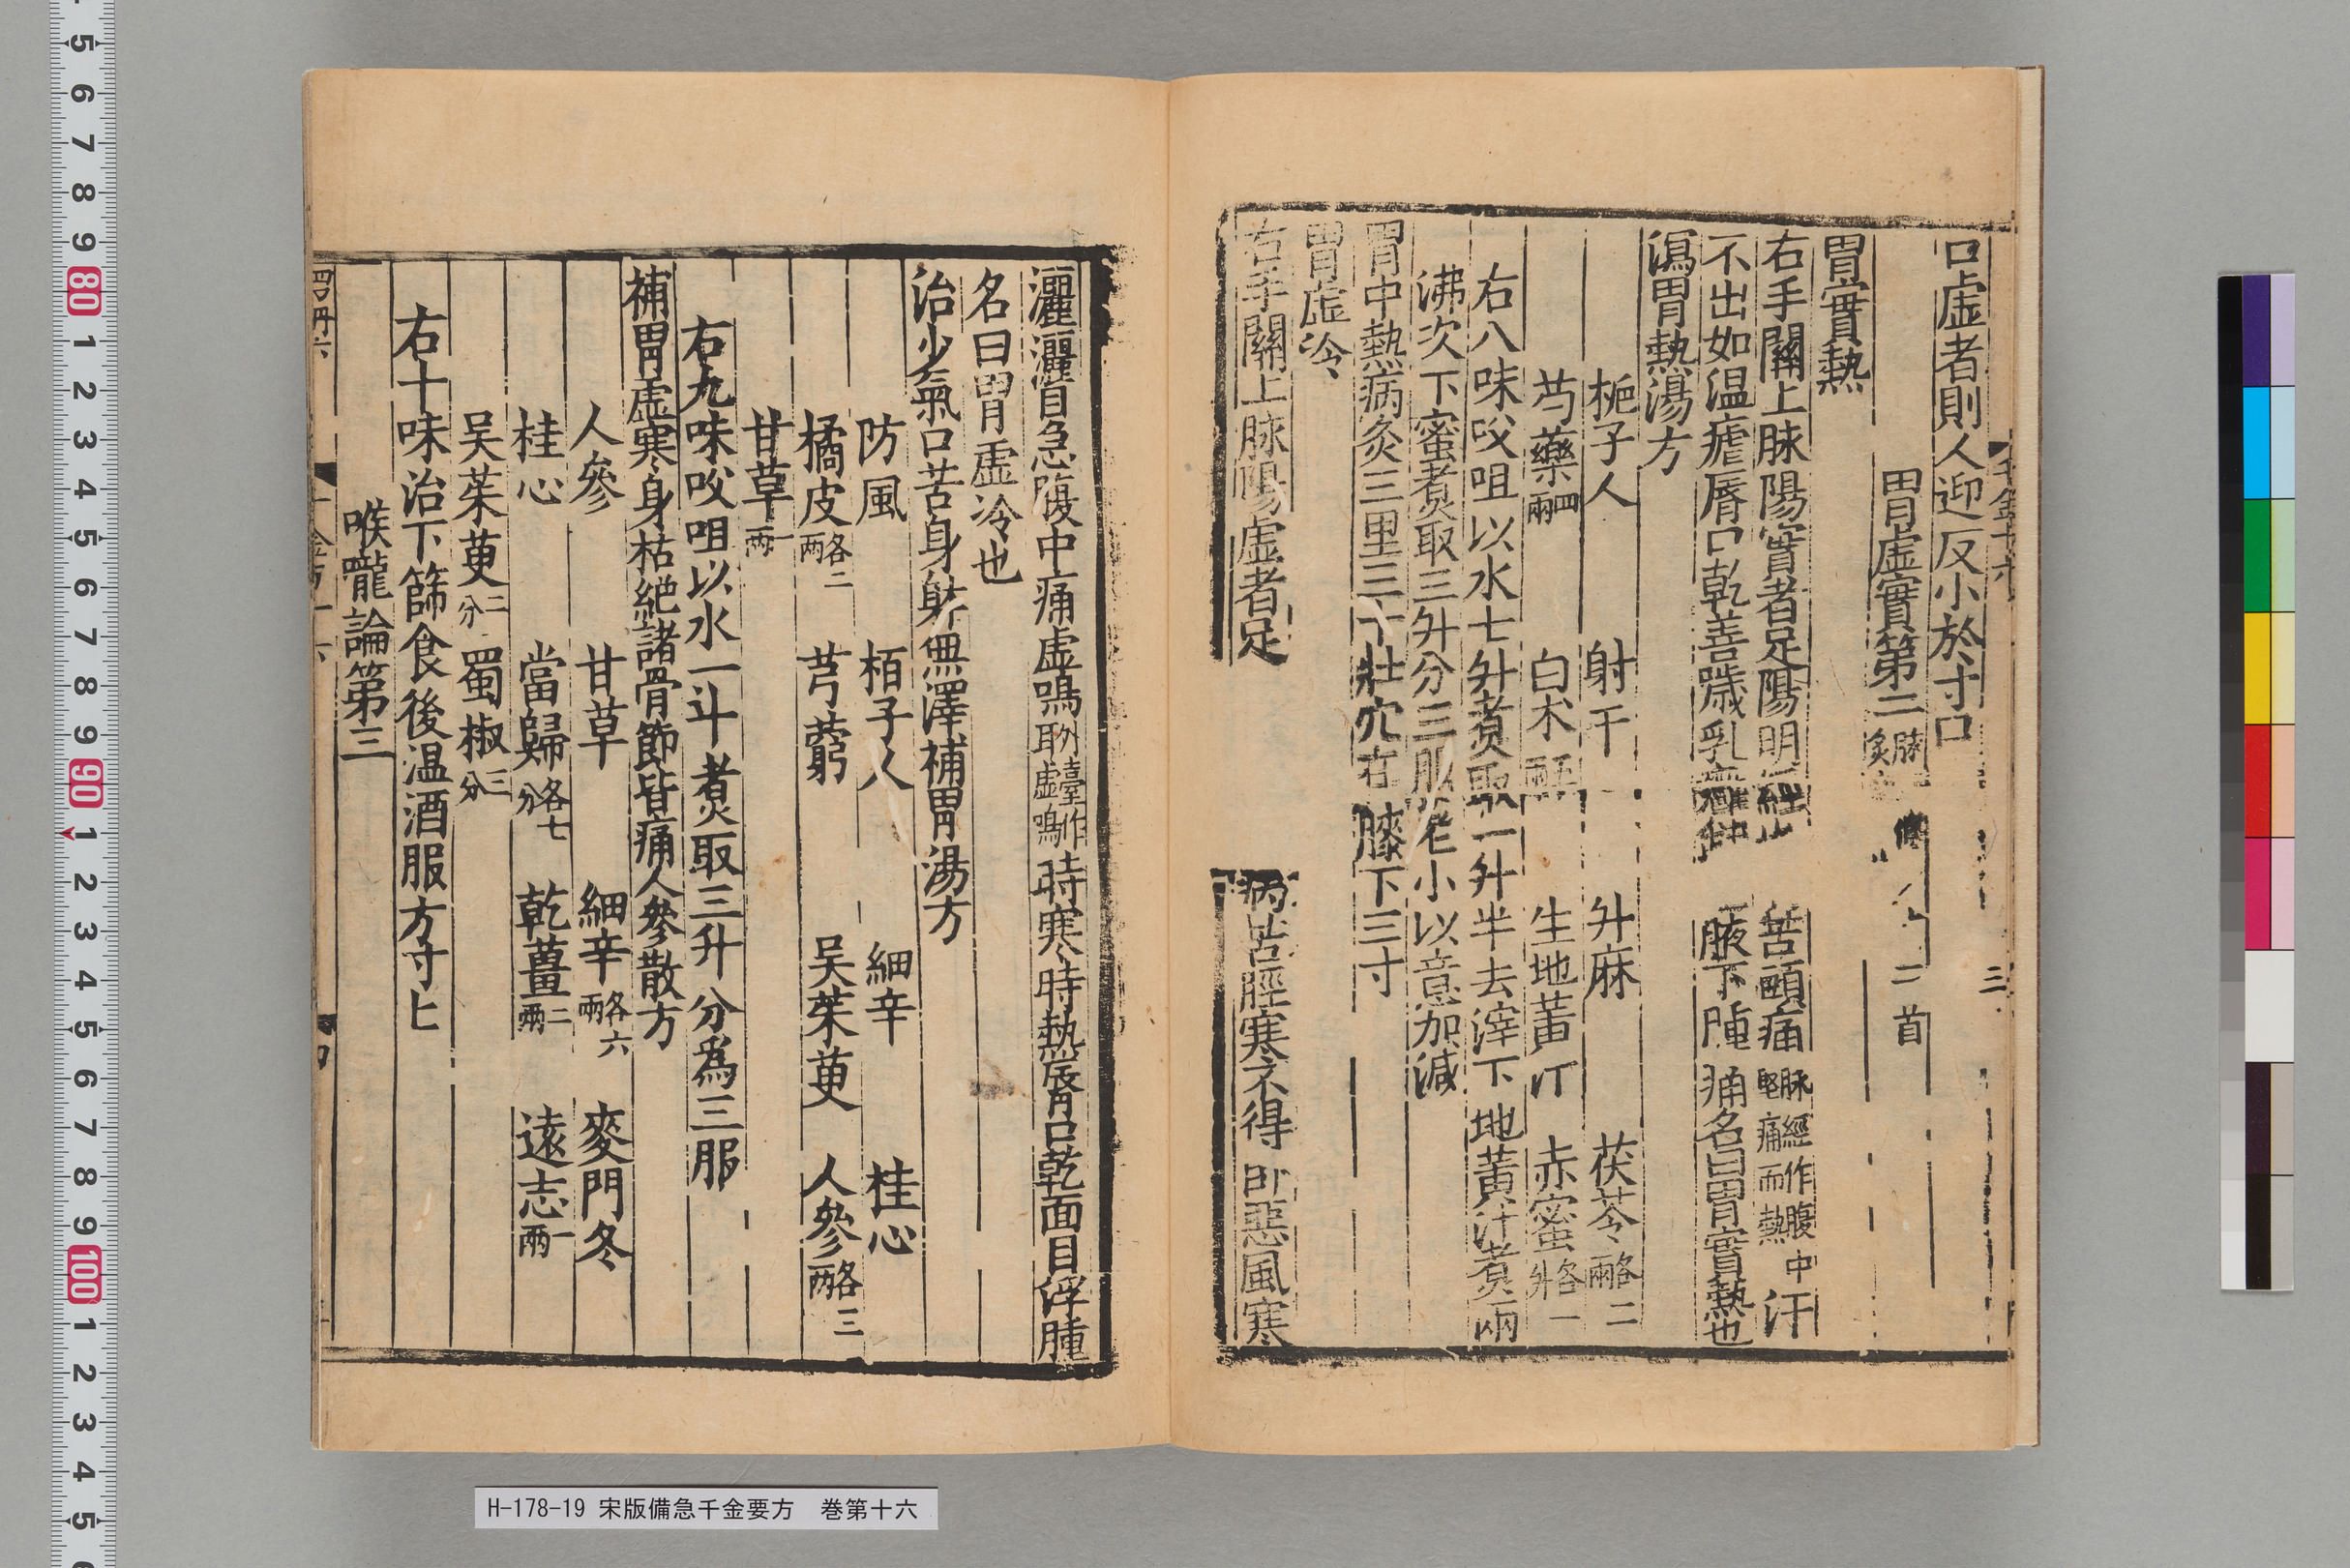 千金十六 三
口虛者則人迎反小於寸口
胃虛實第二 三首
胃實熱
右手關上脉陽實者足陽明經也 苦頭痛脉經作腹中堅痛而熱汗
不出如温瘧脣口乾善噦乳癰 腋下腫痛名曰胃實熱也
瀉胃熱湯方
梔子人 射干 升麻 茯苓各二兩
芍藥四兩 白术五兩 生地黃汁 赤蜜各一升
右八味㕮咀以水七升煮取一升半去滓下地黃汁煮兩
沸次下蜜煮取三升分三服老小以意加減
胃中熱病灸三里三十壯穴在膝下三寸
胃虛冷
右手關上脉陽虛者足 病苦脛寒不得卧惡風寒
灑灑目急腹中痛虛鳴外臺作耴虛鳴時寒時熱脣口乾面目浮腫
名曰胃虛冷也
治少氣口苦身躰無澤補胃湯方
防風 栢子人 細辛 桂心
橘皮各二兩 芎藭 吴茱萸 人參各三兩
甘草一兩
右九味㕮咀以水一斗煮取三升分爲三服
補胃虛寒身枯絕諸骨節皆痛人參散方
人參 甘草 細辛各六兩 麥門冬
桂心 當歸各七分 乾薑二兩 遠志一兩
吴茱萸二分 蜀椒三分
右十味治下篩食後温酒服方寸匕
喉嚨論第三
H-178-19 宋版備急千金要方 巻第十六